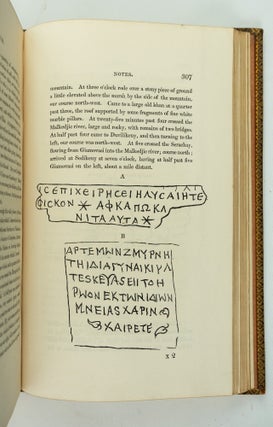 NOTES. 307
mountain. At three o'clock rode over a stony piece of ground
a little elevated above the marsh by the side of the mountain,
our course north-west. Came to a large old khan at a quarter
past three, the roof supported by some fragments of fine white
marble pillars. At twenty-five minutes past four crossed the
Malkodjic river, large and rocky, with remains of two bridges.
At half past four came to Dwrilikeny, and then turning to the
left, our course north-west. At five crossed the Serachay,
flowing from Giamovasi into the Malkodjic river; course north;
arrived at Sedikeny at seven o'clock, having at half past five
Giamovasi on the left, about a mile distant.
A
ΙϹΕΠΙΧΕΙΡΗϹΕΙΗΛΥϹΑΙΗΤΕ
ΦΙϹΚΟΝ ⚹ ΑΦΚΑΠΩΚΛ
ΝΙΤΑΥΤΑ ⚹
B
ΑΡΤΕΜΩΝΖΜΥΡΝΗ
ΤΗΙΔΙΑΓΥΝΑΙΚΙΥΛ
ΤΕϹΚΕΥΑϹΕΙΙΤΟΗ
ΡΩΟΝΕΚΤΩΝΙΔΙΩΝ
ΜΝΕΙΑϹΧΑΡΙΝ
ΧΑΙΡΕΤΕ
X 2